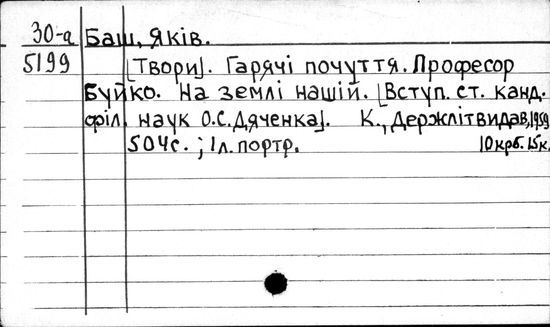 30-а Баш, Яків.
5199 [Твори]. Гарячі почуття. Професор
Буйко. На землі нашій. [Вступ. ст. канд.
філ. наук О.С.Дяченка]. К., Держлітвидав, 1959
504с.; 1л. портр. 10крб. 15к.